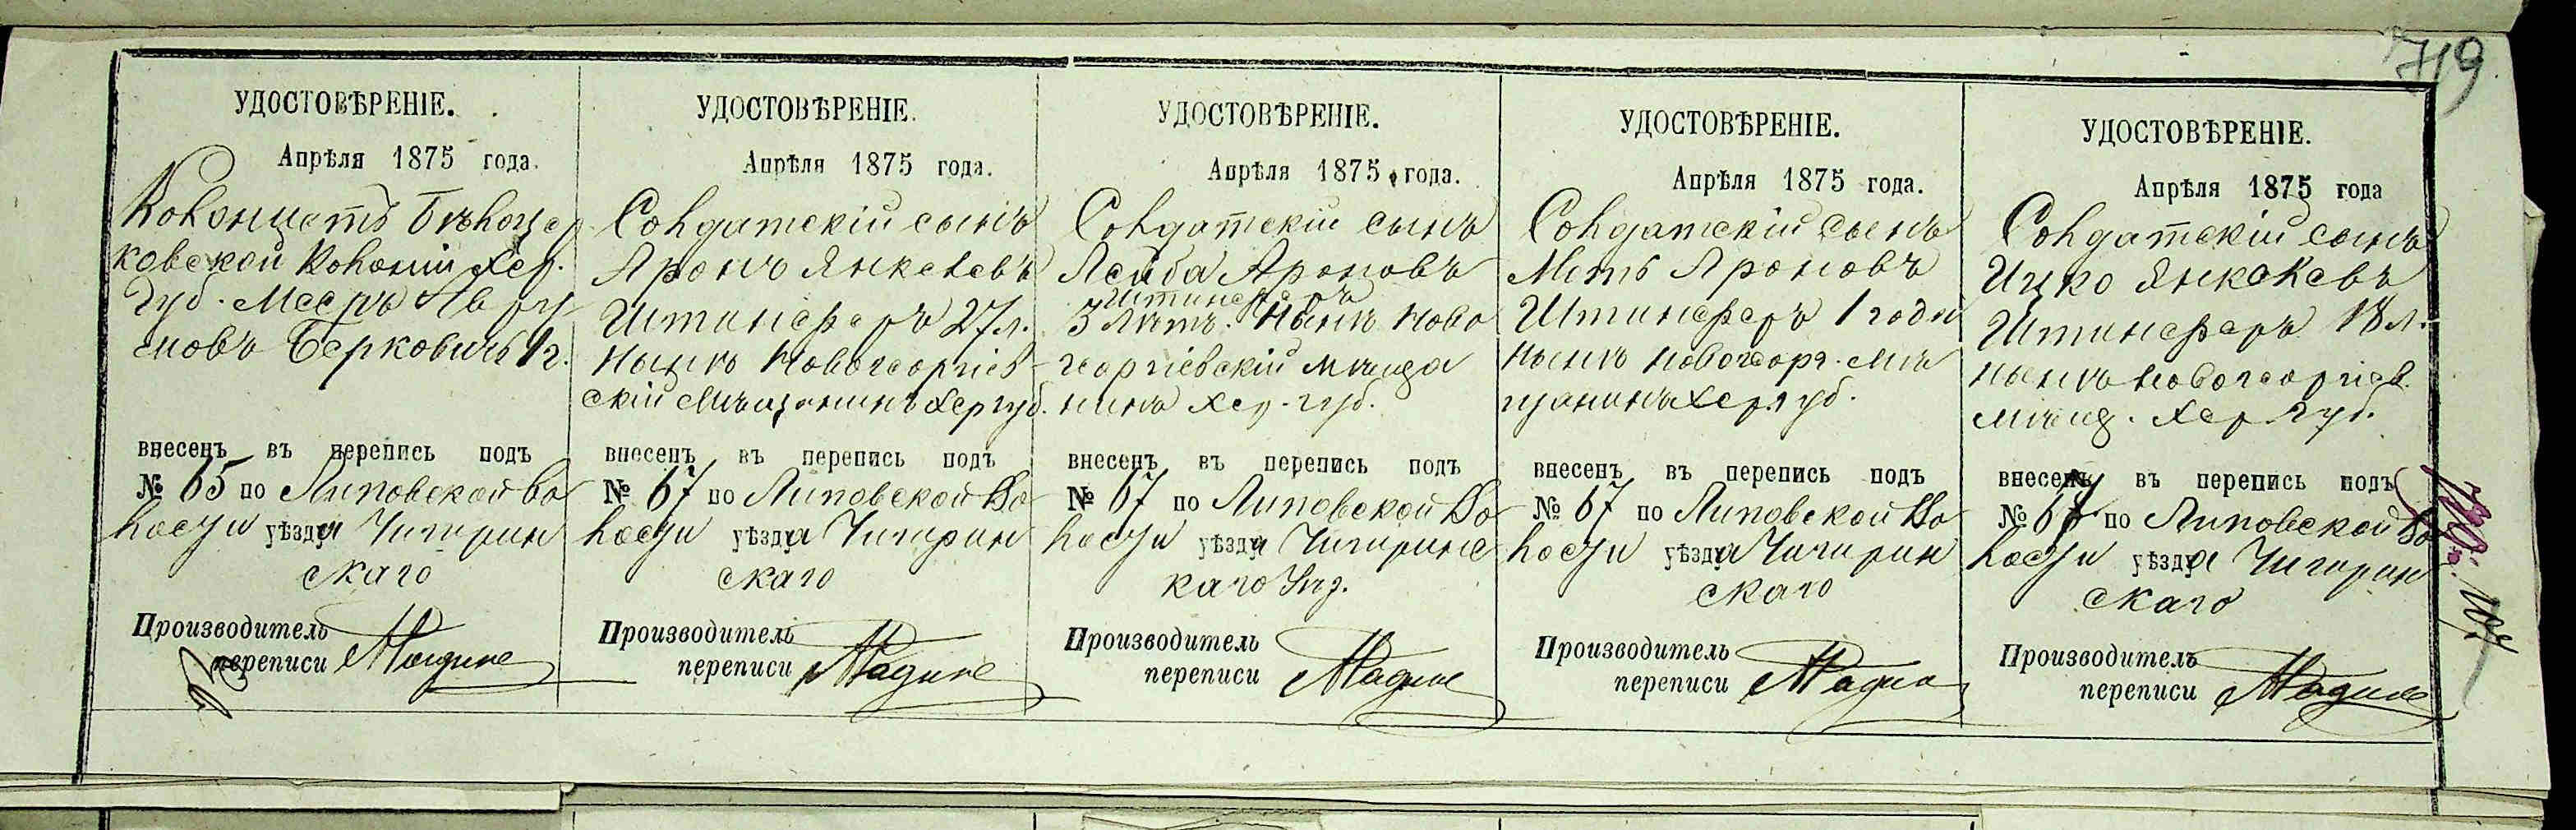 719
УДОСТОВѢРЕНІЕ.
Апрѣля 1875 года.
Колонистъ Бѣлоцер
ковской колоніи Хер.
Губ. Мееръ Авру-
мовъ Берковичъ 1 г.
внесенъ въ перепись подъ
№ 65 по Липовской Во
лости уѣзда Чигирин
скаго
Производитель
переписи
УДОСТОВѢРЕНІЕ.
Апрѣля 1875 года.
Солдатскій сынъ
Аронъ Янкелевъ
Штинеферъ 27 л.
нынѣ Новогеоргіев-
скій мѣщанинъ Хер губ.
внесенъ въ перепись подъ
№ 67 по Липовской Во
лости уѣзда Чигирин
скаго
Производитель
переписи
УДОСТОВѢРЕНІЕ.
Апрѣля 1875 года.
Солдатскій сынъ
Лейба Ароновъ
Штинеферъ
3 лѣтъ. Нынѣ Ново
георгіевскій мѣща
нинъ Хер. губ.
внесенъ въ перепись подъ
№ 67 по Липовской Во
лости уѣзда Чигиринс
каго Уѣз.
Производитель
переписи
УДОСТОВѢРЕНІЕ.
Апрѣля 1875 года.
Солдатскій сынъ
Ароновъ
Штинеферъ 1 года
нынѣ новогеорг. мѣ
щанинъ Хер. губ.
внесенъ въ перепись подъ
№ 67 по Липовской Во
лости уѣзда Чигирин
скаго
Производитель
переписи
УДОСТОВѢРЕНІЕ.
Апрѣля 1875 года
Солдатскій сынъ
Ицко Янкелевъ
Штинеферъ 18 л.
нынѣ новогеоргіев.
мѣщ. Хер губ.
внесенъ въ перепись подъ
№ 67 по Липовской Во
лости уѣзда Чигирин
скаго
Производитель
переписи